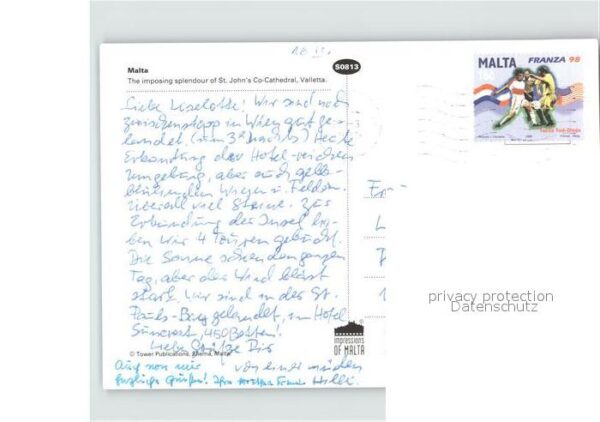 18.11.
Malta
The imposing splendour of St. John's Co-Cathedral, Valletta.
S0813
MALTA
FRANZA 98
Liebe Liselotte! Wir sind nach
Zwischenstopp in Wien gut ge-
landet. (um 3h nachts) Heute
Erkundung der Hotel-
umgebung, aber auch gelb-
blühenden Wiesen u. Felder.
Überall viel Steine. Zur
Erkundung der Insel ha-
ben wir 4 Touren gebucht.
Die Sonne schien den ganzen
Tag, aber der Wind bläst
stark. Wir sind in der St.
Pauls-Bay gelandet, im Hotel
Suncrest, 450 Betten!
Liebe Grüße Dir
von einer müden
Hilli.
Auch von mir
herzliche Grüße! Ihre
© Tower Publications, Sliema, Malta
impressions
OF MALTA
privacy protection
Datenschutz